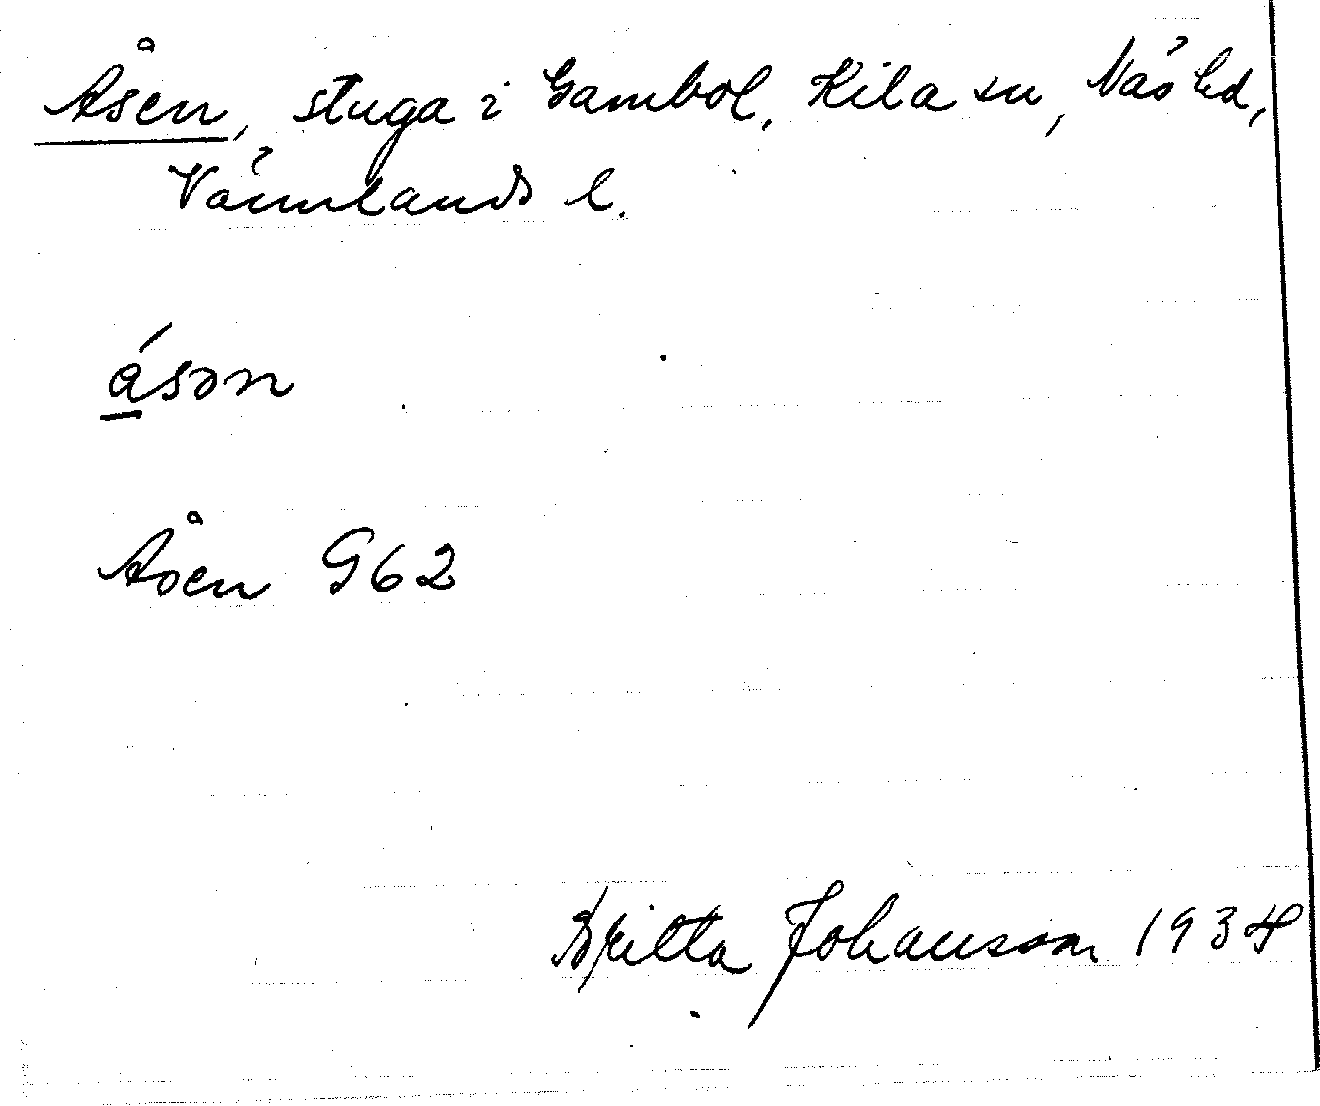 Åsen, stuga i Gambol, Kila sn, Näs hd,
Värmlands l.
á̱sən
Åsen G62
Britta Johansson 1934